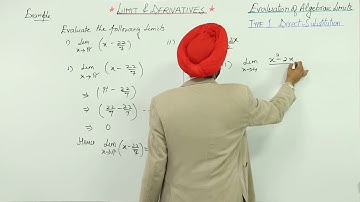 Example
LIMIT & DERIVATIVES
Evaluation of Algebraic Limits
TYPE 1 Direct-Substitution
Evaluate the following limits
i) lim x→π (x - 22/7)
ii)
i) Lim x→π (x - 22/7)
⇒ (π - 22/7)
⇒ (22/7 - 22/7)
⇒ 0
Hence Lim x→π (x - 22/7) =
lim
x² - 2x